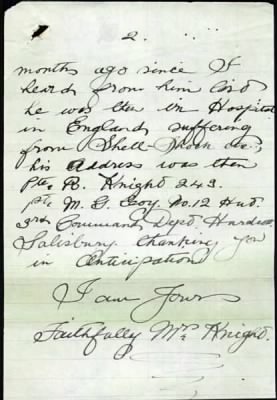 2.
months ago since I
heard from him last
he was then in Hospital
in England suffering
from Shell-Shock &c.,
his address was then
Pte R. Knight 243.
M. G. Coy. No. 12 Hut.
3rd Command Depot Hurdcott
Salisbury. Thanking you
in Anticipation
I am Yours
Faithfully Mrs Knight.